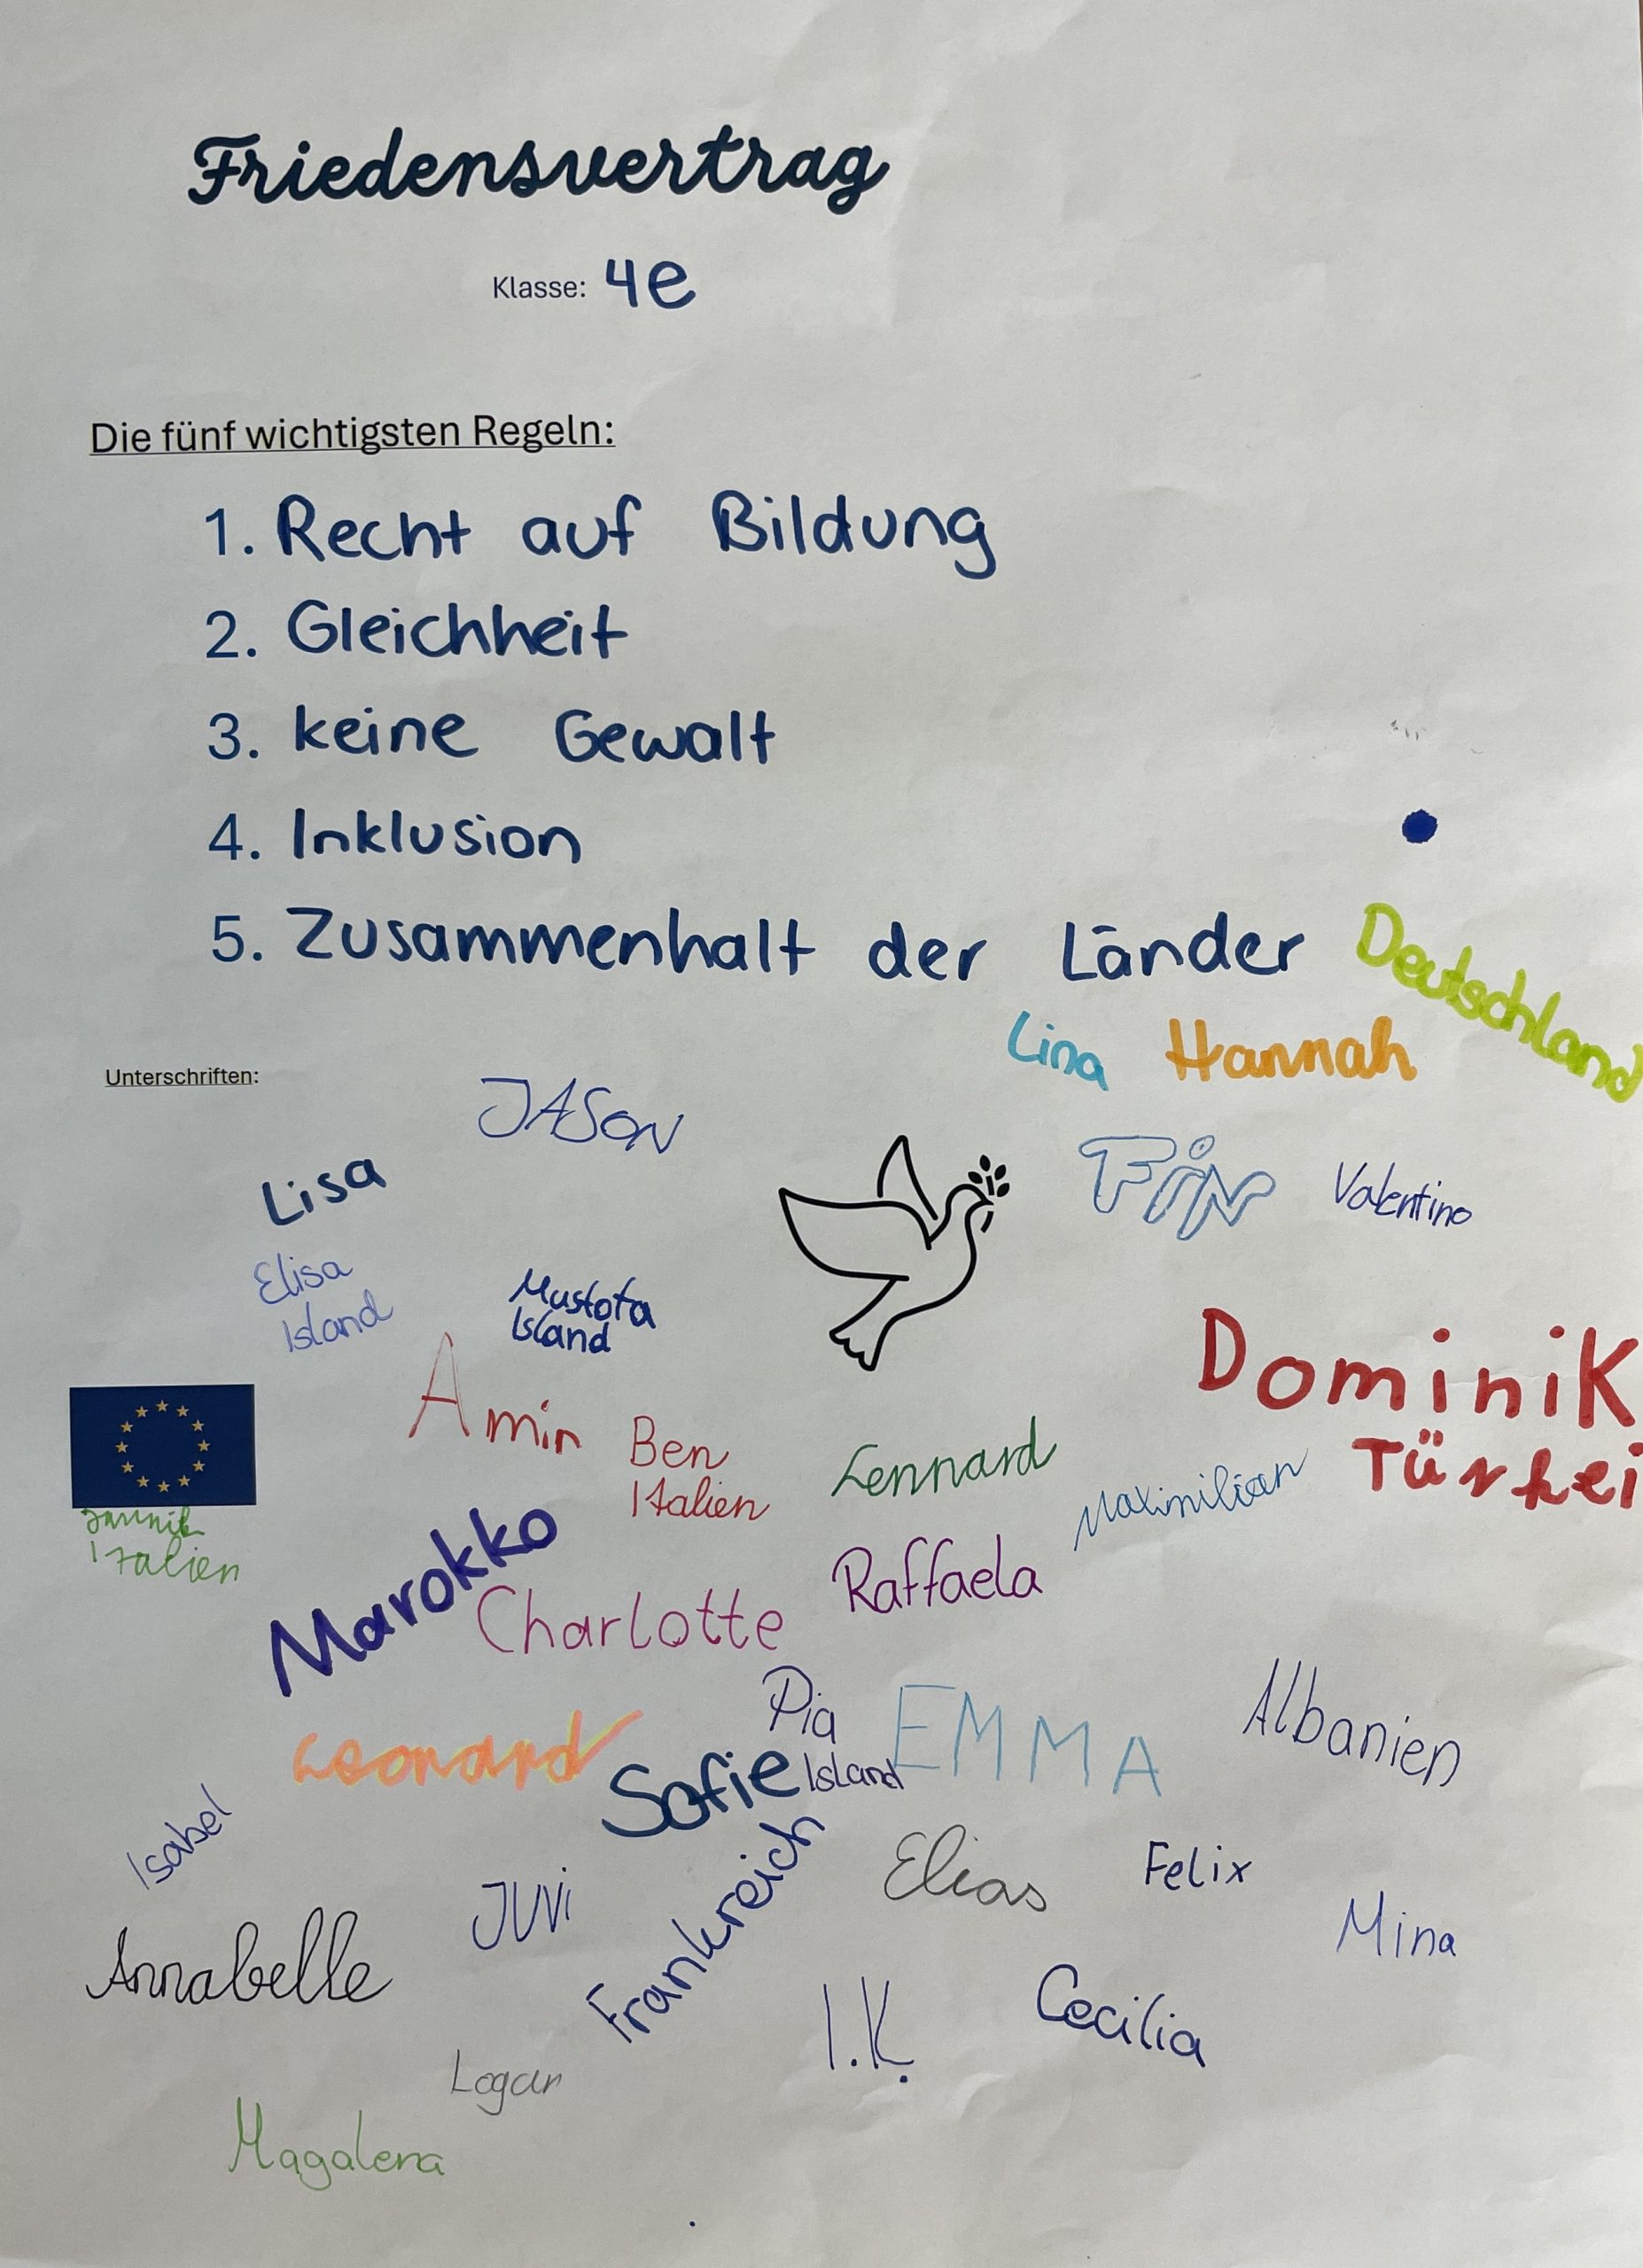 Friedensvertrag
Klasse: 4e
Die fünf wichtigsten Regeln:
1. Recht auf Bildung
2. Gleichheit
3. keine Gewalt
4. Inklusion
5. Zusammenhalt der Länder
Deutschland
Lina Hannah
Unterschriften:
JASON
Lisa
FiN
Valentino
Elisa
Island
Mustofa
Island
Dominik
Türkei
Amin
Ben
Italien
Lennard
Maximilian
Jannik
Italien
Marokko
Charlotte
Raffaela
Pia
Island
EMMA
Albanien
Leonard
Sofie
Isabel
Frankreich
Elias
Felix
JUVi
Mina
Annabelle
I.K.
Cecilia
Logan
Magalena